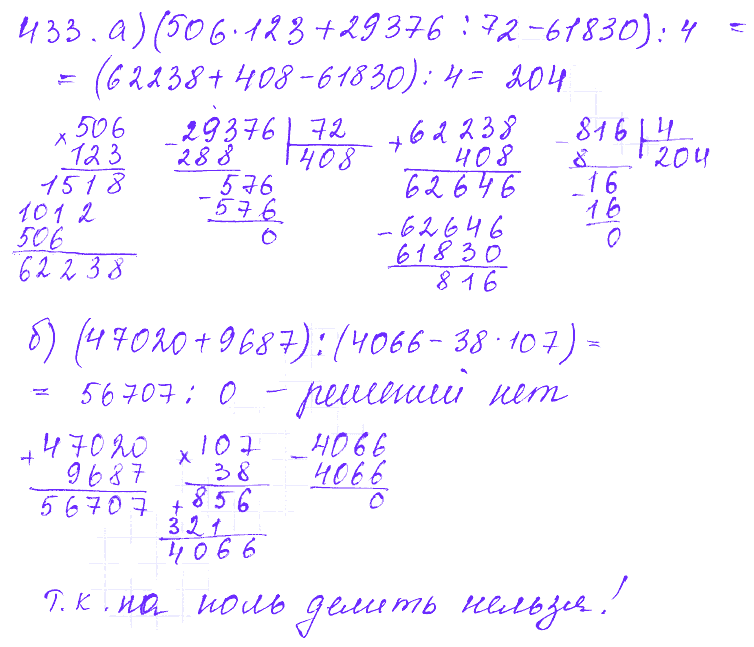 433. а) (506·123+29376:72-61830):4 =
= (62238+408-61830):4= 204
× 506
123
1518
1012
506
62238
- 29376 | 72
288 408
- 576
576
0
+ 62238
408
62646
- 62646
61830
816
- 816 | 4
8 204
- 16
16
0
б) (47020+9687):(4066-38·107)=
= 56707: 0 - решений нет
+ 47020
9687
56707
× 107
38
+ 856
321
4066
- 4066
4066
0
Т.к. на ноль делить нельзя!